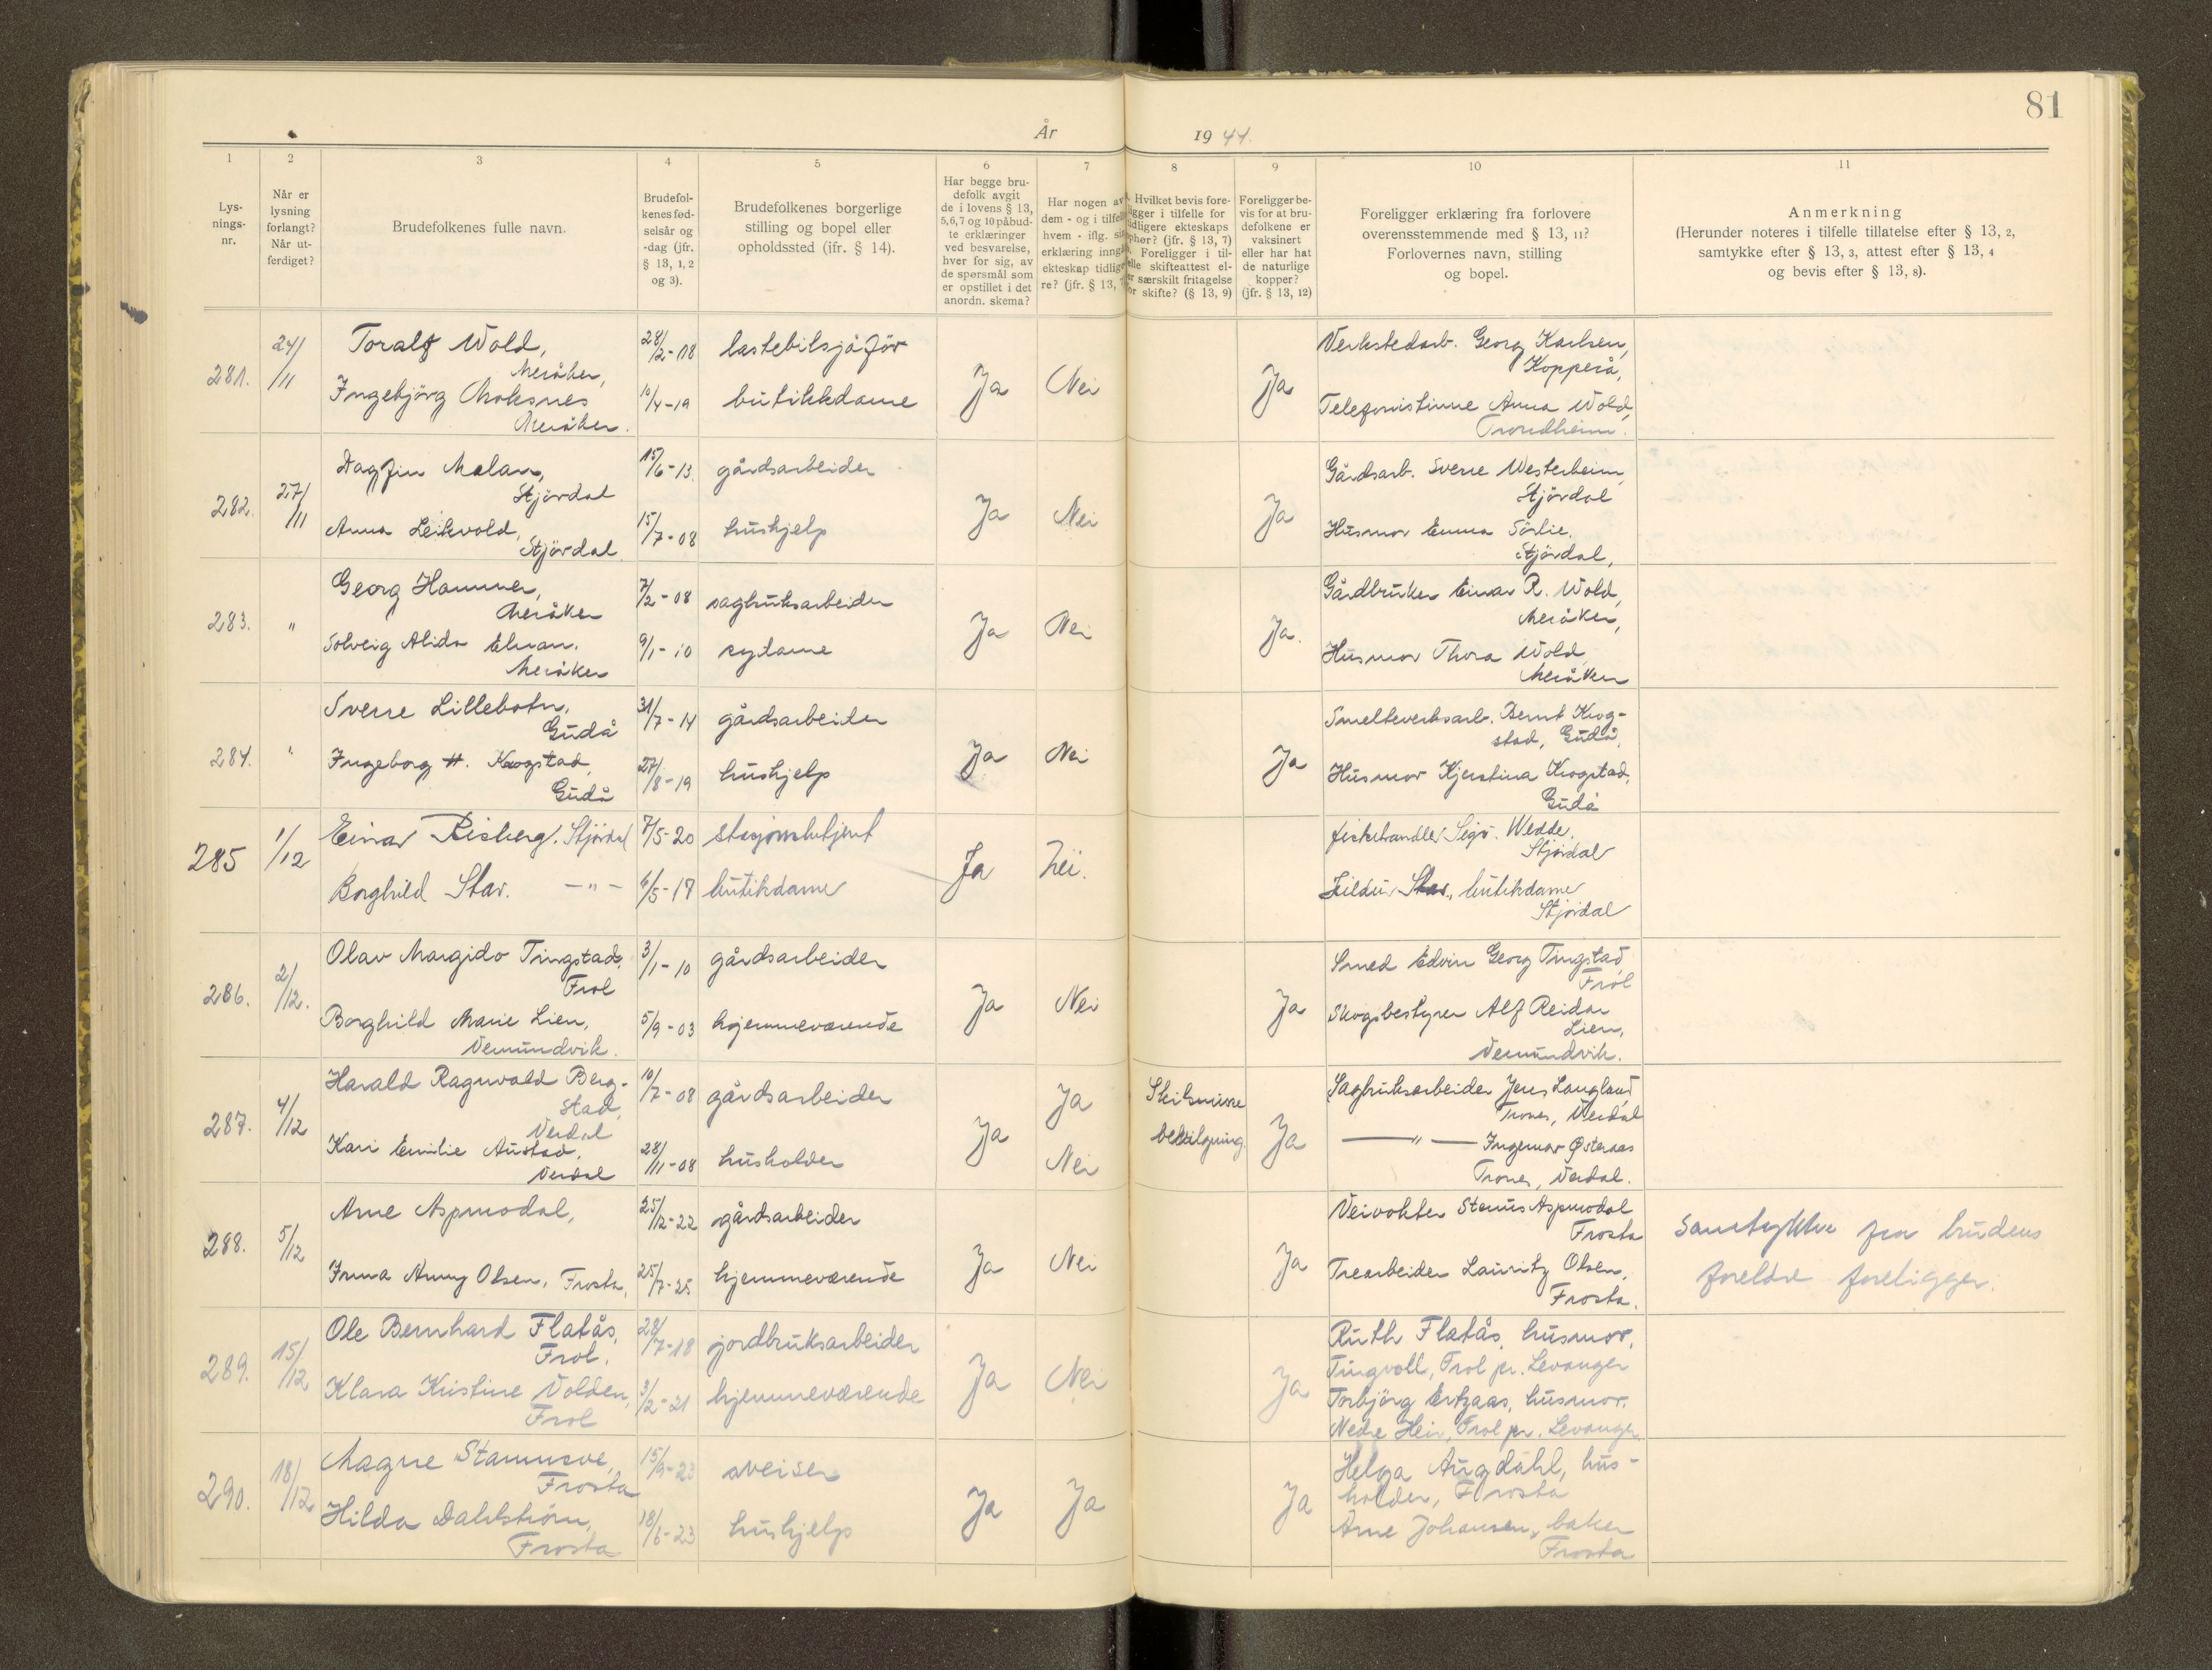 81
År 1944.
1 2 3 4 5 6 7 8 9 10 11
Lys-
nings-
nr.
Når er
lysning
forlangt?
Når ut-
ferdiget?
Brudefolkenes fulle navn.
Brudefol-
kenes fød-
selsår og
-dag (jfr.
§ 13, 1, 2
og 3).
Brudefolkenes borgerlige
stilling og bopel eller
opholdssted (ifr. § 14).
Har begge bru-
defolk avgit
de i lovens § 13,
5,6,7 og 10 påbud-
te erklæringer
ved besvarelse,
hver for sig, av
de spørsmål som
er opstillet i det
anordn. skema?
Har nogen av
dem - og i tilfelle
hvem - iflg. sin
erklæring inngått
ekteskap tidlige-
re? (jfr. § 13,
Hvilket bevis fore-
ligger i tilfelle for
tidligere ekteskaps
ophør? (jfr. § 13, 7)
Foreligger i til-
felle skifteattest el-
ler særskilt fritagelse
for skifte? (§ 13, 9)
Foreligger be-
vis for at bru-
defolkene er
vaksinert
eller har hat
de naturlige
kopper?
(jfr. § 13, 12)
Foreligger erklæring fra forlovere
overensstemmende med § 13, 11?
Forlovernes navn, stilling
og bopel.
Anmerkning
(Herunder noteres i tilfelle tillatelse efter § 13, 2,
samtykke efter § 13, 3, attest efter § 13, 4
og bevis efter § 13, 8).
281. 24/11
Toralf Wold, 28/2-18 lastebilsjåfør
Meråker,
Ingebjörg Moksnes 10/4-19 butikkdame
Meråker.
Ja Nei Ja
Verkstedarb. Georg Karlsen,
Kopperå,
Telefonistinne Anna Wold,
Trondheim.
282. 27/11
Dagfin Mælan, 15/6-13. gårdsarbeider
Stjördal
Anna Leikvold, 15/7-08 hushjelp
Stjördal
Ja Nei Ja
Gårdsarb. Sverre Westerheim,
Stjördal
Husmor Emma Sörlie,
Stjördal,
283. "
Georg Hammer, 7/2-08 sagbruksarbeider
Meråker
Solveig Alida Elvan. 9/1-10 sydame
Meråker
Ja Nei Ja.
Gårdbruker Einar R. Wold,
Meråker,
Husmor Thora Wold,
Meråker
284. "
Sverre Lillebotn, 31/7-14 gårdsarbeider
Gudå
Ingeborg H. Krogstad, 27/8-19 hushjelp
Gudå
Ja Nei Ja
Smelteverksarb. Bernt Krog-
stad, Gudå,
Husmor Kjerstina Krogstad,
Gudå
285 1/12
Einar Risberg. Stjørdal 7/5-20 stasjonsbetjent
Borghild Stav. —"— 6/5-17 butikdame
Ja Nei.
fiskehandler Sigv. Wedde.
Stjørdal
Hildur Stav, butikdame
Stjørdal
286. 2/12.
Olav Margido Tingstad, 3/1-10 gårdsarbeider
Frol
Borghild Marie Lien, 5/9-03 hjemmeværende
Vemundvik.
Ja Nei Ja
Smed Edvin Georg Tingstad,
Frol
Skogsbestyrer Alf Reidar
Lien,
Vemundvik.
287. 4/12
Harald Ragnvald Berg- 10/7-08 gårdsarbeider
stad,
Verdal
Kari Emilie Austad, 28/11-08 husholder
Verdal
Ja Ja
Nei
Skilsmisse
bevilgning.
Ja
Sagbruksarbeider Jens Langland
Trones, Verdal
—"— Ingemar Østeraas
Trones, Verdal.
288. 5/12
Arne Aspmodal, 25/12-22 gårdsarbeider
Irma Anny Olsen, Frosta, 25/7-25 hjemmeværende
Ja Nei Ja
Veivokter Aspmodal
Frosta
Trearbeider Lauritz Olsen,
Frosta.
Samtykke fra brudens
foreldre foreligger.
289. 15/12
Ole Bernhard Flatås, 28/7-18 jordbruksarbeider
Frol.
Klara Kristine Volden, 3/2-21 hjemmeværende
Frol
Ja Nei Ja
Ruth Flatås, husmor,
Tingvoll, Frol pr. Levanger
Torbjörg Ertzaas, husmor.
Nedre Hein, Frol pr. Levanger
290. 18/12
Magne Stamnsve, 15/9-23 sveiser
Frosta
Hilda Dahlström, 18/6-23 hushjelp
Frosta
Ja Ja Ja
Helga Augdahl, hus-
holder, Frosta
Arne Johansen, baker
Frosta